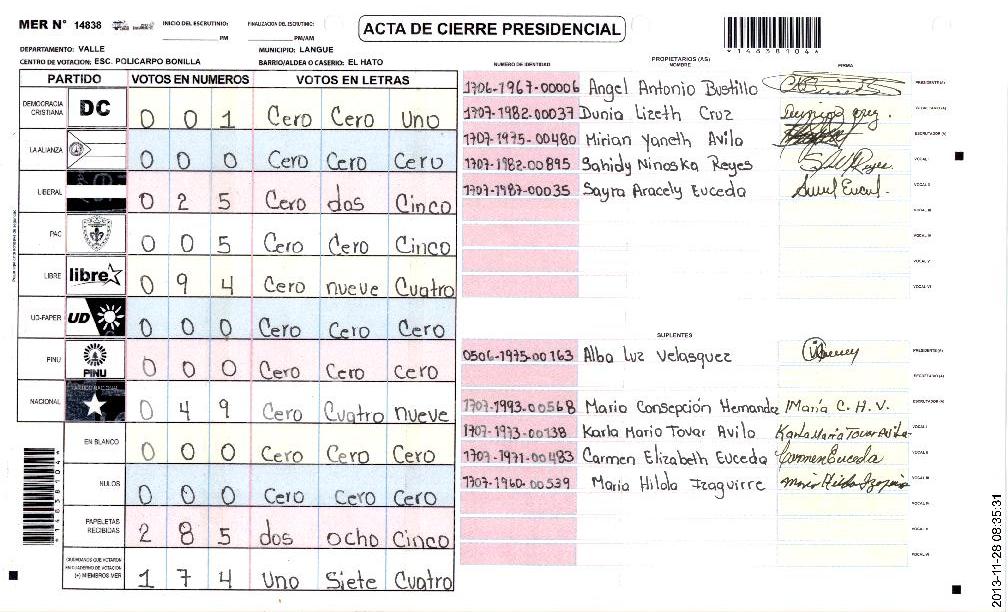 MER N° 14838 INICIO DEL ESCRUTINIO: PM FINALIZACIÓN DEL ESCRUTINIO: PM/AM
ACTA DE CIERRE PRESIDENCIAL
*14838104*
DEPARTAMENTO: VALLE MUNICIPIO: LANGUE
CENTRO DE VOTACION: ESC. POLICARPO BONILLA BARRIO/ALDEA O CASERIO: EL HATO
PARTIDO VOTOS EN NUMEROS VOTOS EN LETRAS
DEMOCRACIA CRISTIANA DC 0 0 1 Cero Cero Uno
LA ALIANZA 0 0 0 Cero Cero Cero
LIBERAL 0 2 5 Cero dos Cinco
PAC 0 0 5 Cero Cero Cinco
LIBRE libre 0 9 4 Cero nueve Cuatro
UD-FAPER UD 0 0 0 Cero Cero Cero
PINU PINU 0 0 0 Cero Cero cero
NACIONAL 0 4 9 Cero Cuatro nueve
EN BLANCO 0 0 0 Cero Cero Cero
NULOS 0 0 0 Cero Cero Cero
PAPELETAS RECIBIDAS 2 8 5 dos ocho Cinco
CIUDADANOS QUE VOTARON EN CUADERNO DE VOTACION (+) MIEMBROS MER 1 7 4 Uno Siete Cuatro
*14838104*
PROPIETARIOS (AS)
NUMERO DE IDENTIDAD NOMBRE FIRMA
1706-1967-00006 Angel Antonio Bustillo PRESIDENTE(A)
1707-1982-00037 Dunia Lizeth Cruz SECRETARIO(A)
1707-1975-00480 Mirian Yaneth Avilo ESCRUTADOR (A)
1707-1982-00895 Sahidy Ninoska Reyes VOCAL I
1707-1987-00035 Sayra Aracely Euceda VOCAL II
VOCAL III
VOCAL IV
VOCAL V
VOCAL VI
SUPLENTES
0506-1975-00163 Alba Luz Velasquez PRESIDENTE(A)
SECRETARIO(A)
1707-1993-00568 Mario Consepción Hernande María C. H. V. ESCRUTADOR (A)
1707-1973-00138 Karla Mario Tovar Avilo Karla María Tovar Avila VOCAL I
1707-1971-00483 Carmen Elizabeth Euceda Carmen Euceda VOCAL II
1707-1960-00539 Maria Hilda Izaguirre VOCAL III
VOCAL IV
VOCAL V
VOCAL VI
2013-11-28 08:35:31